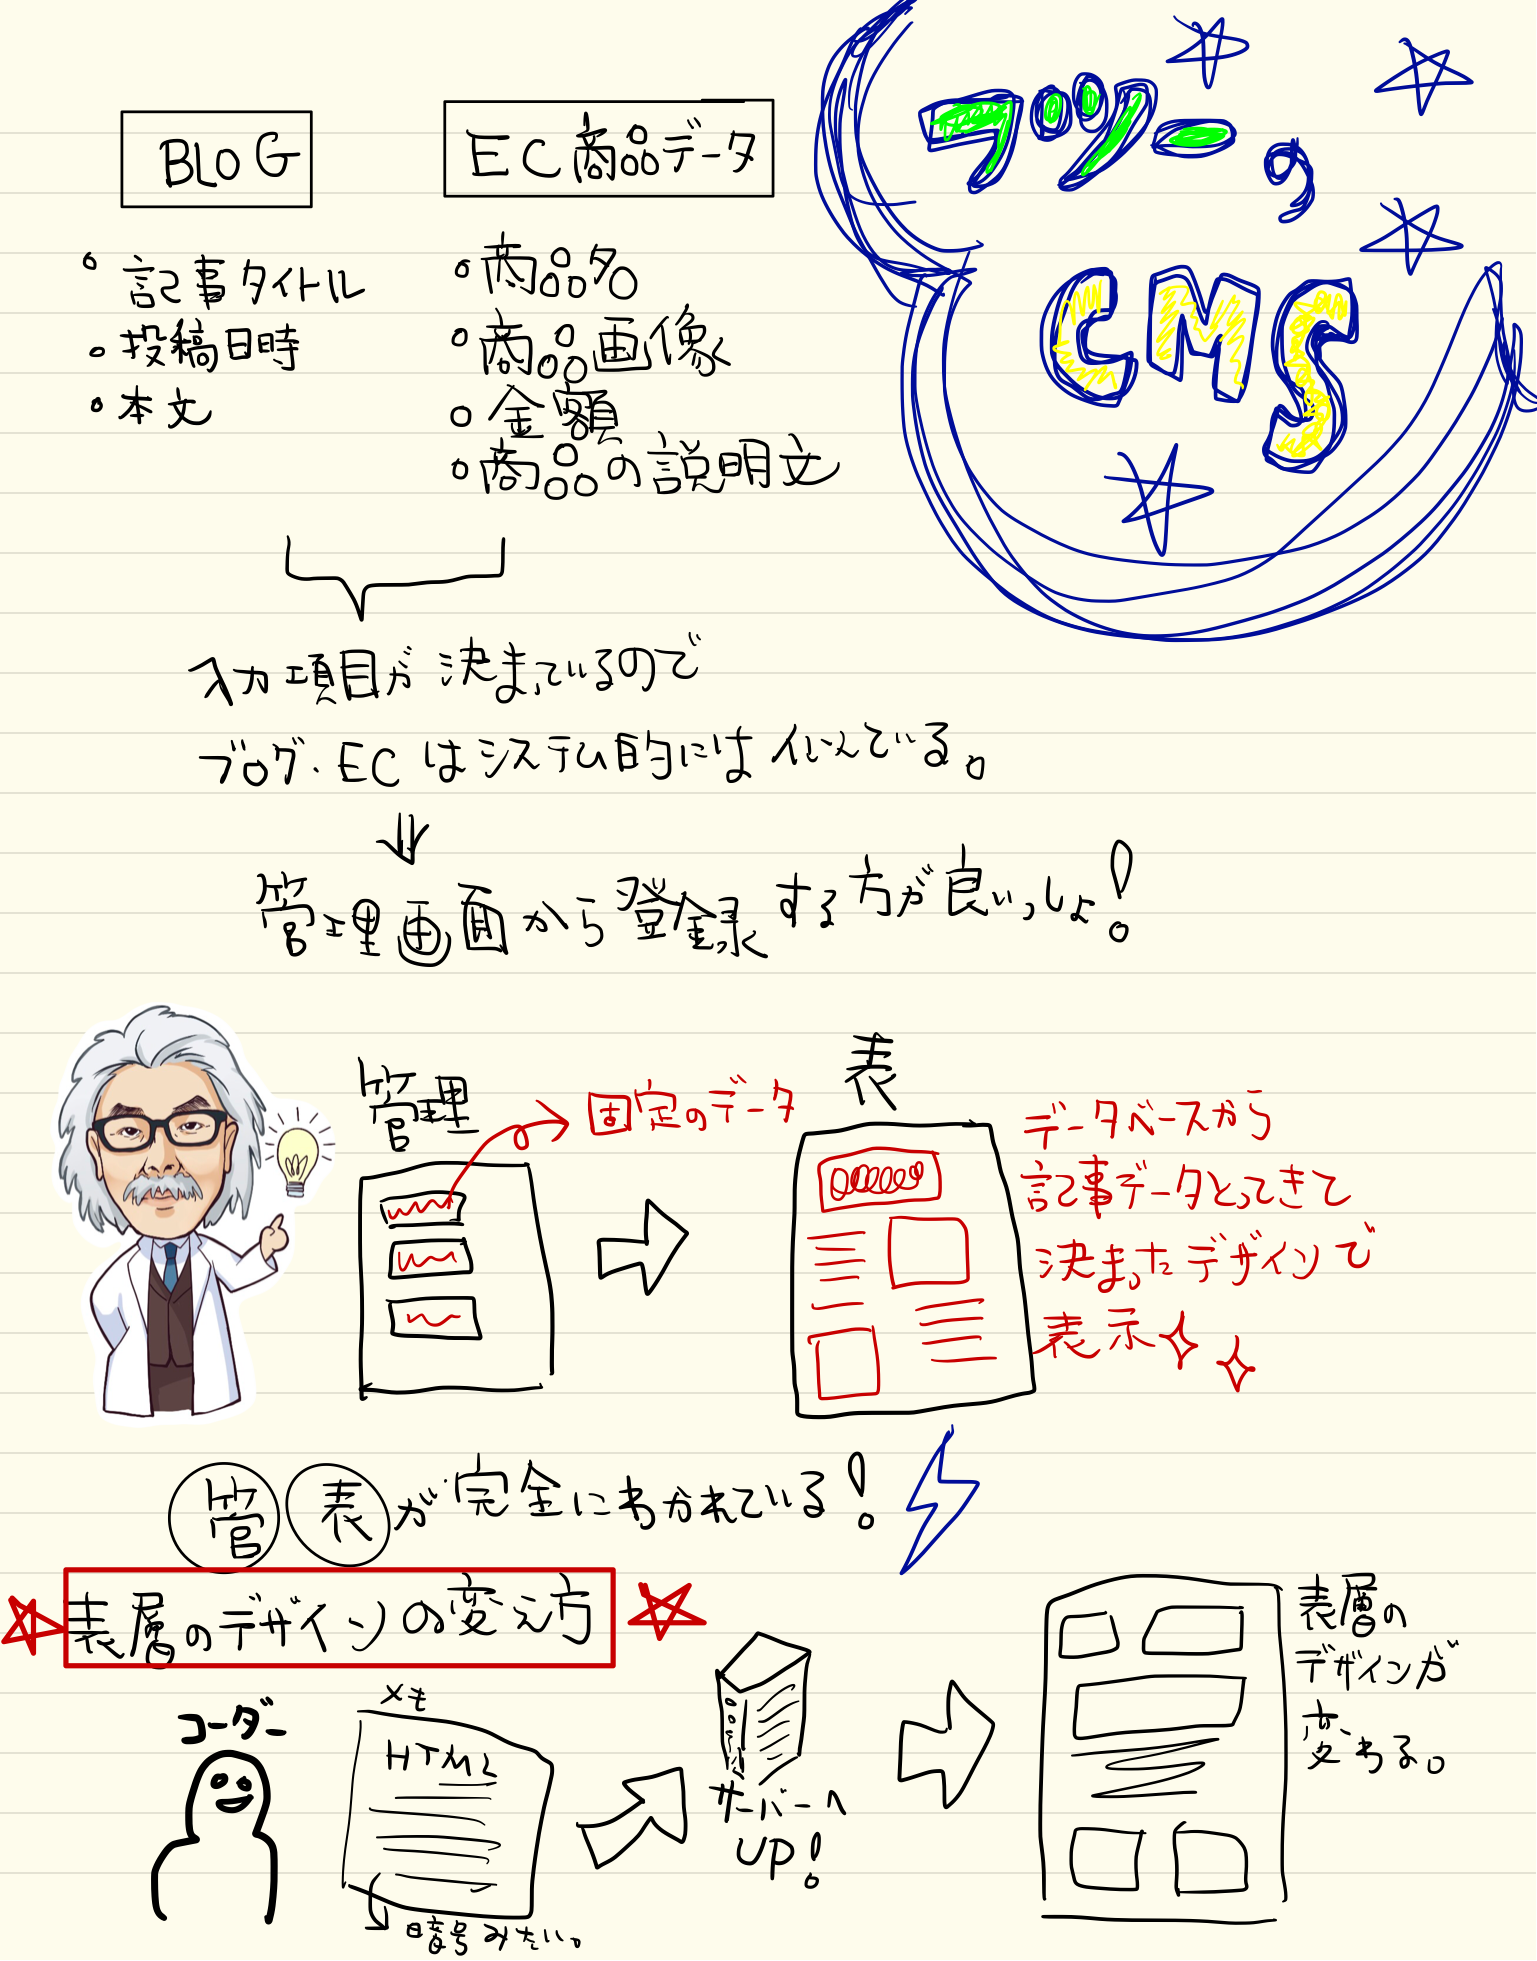 フリーの
CMS
BLOG
・記事タイトル
・投稿日時
・本文
EC商品データ
・商品名
・商品画像
・金額
・商品の説明文
入力項目が決まっているので
ブログ・ECはシステム的には似ている。
管理画面から登録する方が良いっしょ!
管理
固定のデータ
表
データベースから
記事データとってきて
決まったデザインで
表示
管 表 が完全にわかれている!
表層のデザインの変え方
コーダー
メモ
HTML
暗号みたい。
サーバーへ
UP!
表層の
デザインが
変わる。